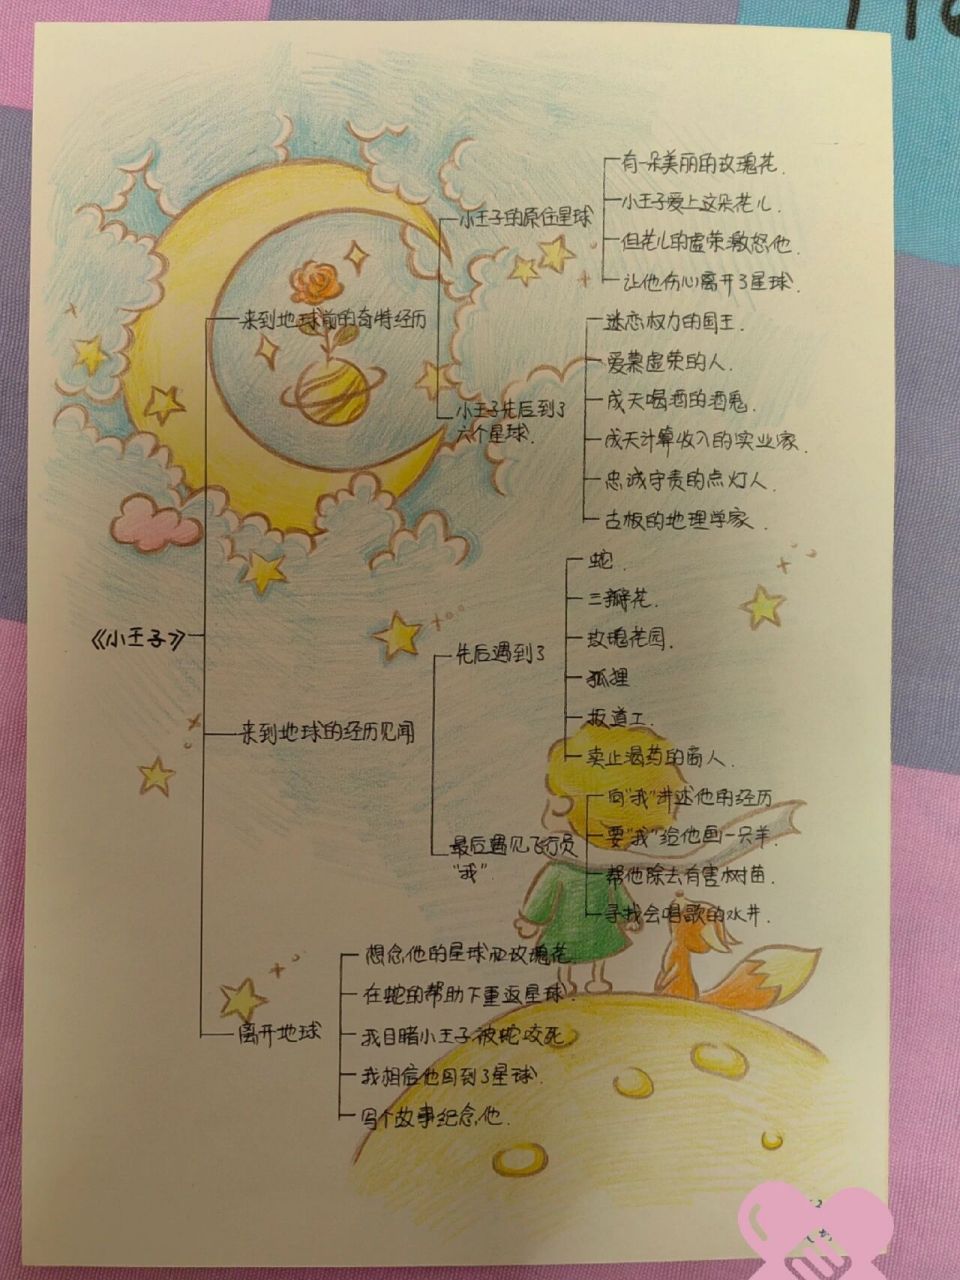 《小王子》
来到地球前的奇特经历
小王子的原住星球
有一朵美丽的玫瑰花.
小王子爱上这朵花儿.
但花儿的虚荣激怒他.
让他伤心离开了星球.
小王子先后到了
六个星球.
迷恋权力的国王.
爱慕虚荣的人.
成天喝酒的酒鬼.
成天计算收入的实业家.
忠诚守责的点灯人.
古板的地理学家.
来到地球的经历见闻
先后遇到了
蛇.
三瓣花.
玫瑰花园.
狐狸
扳道工.
卖止渴药的商人.
最后遇见飞行员
“我”.
向“我”讲述他的经历
要“我”给他画一只羊.
帮他除去有害树苗.
寻找会唱歌的水井.
离开地球
想念他的星球和玫瑰花.
在蛇的帮助下重返星球.
我目睹小王子被蛇咬死
我相信他回到了星球.
写个故事纪念他.